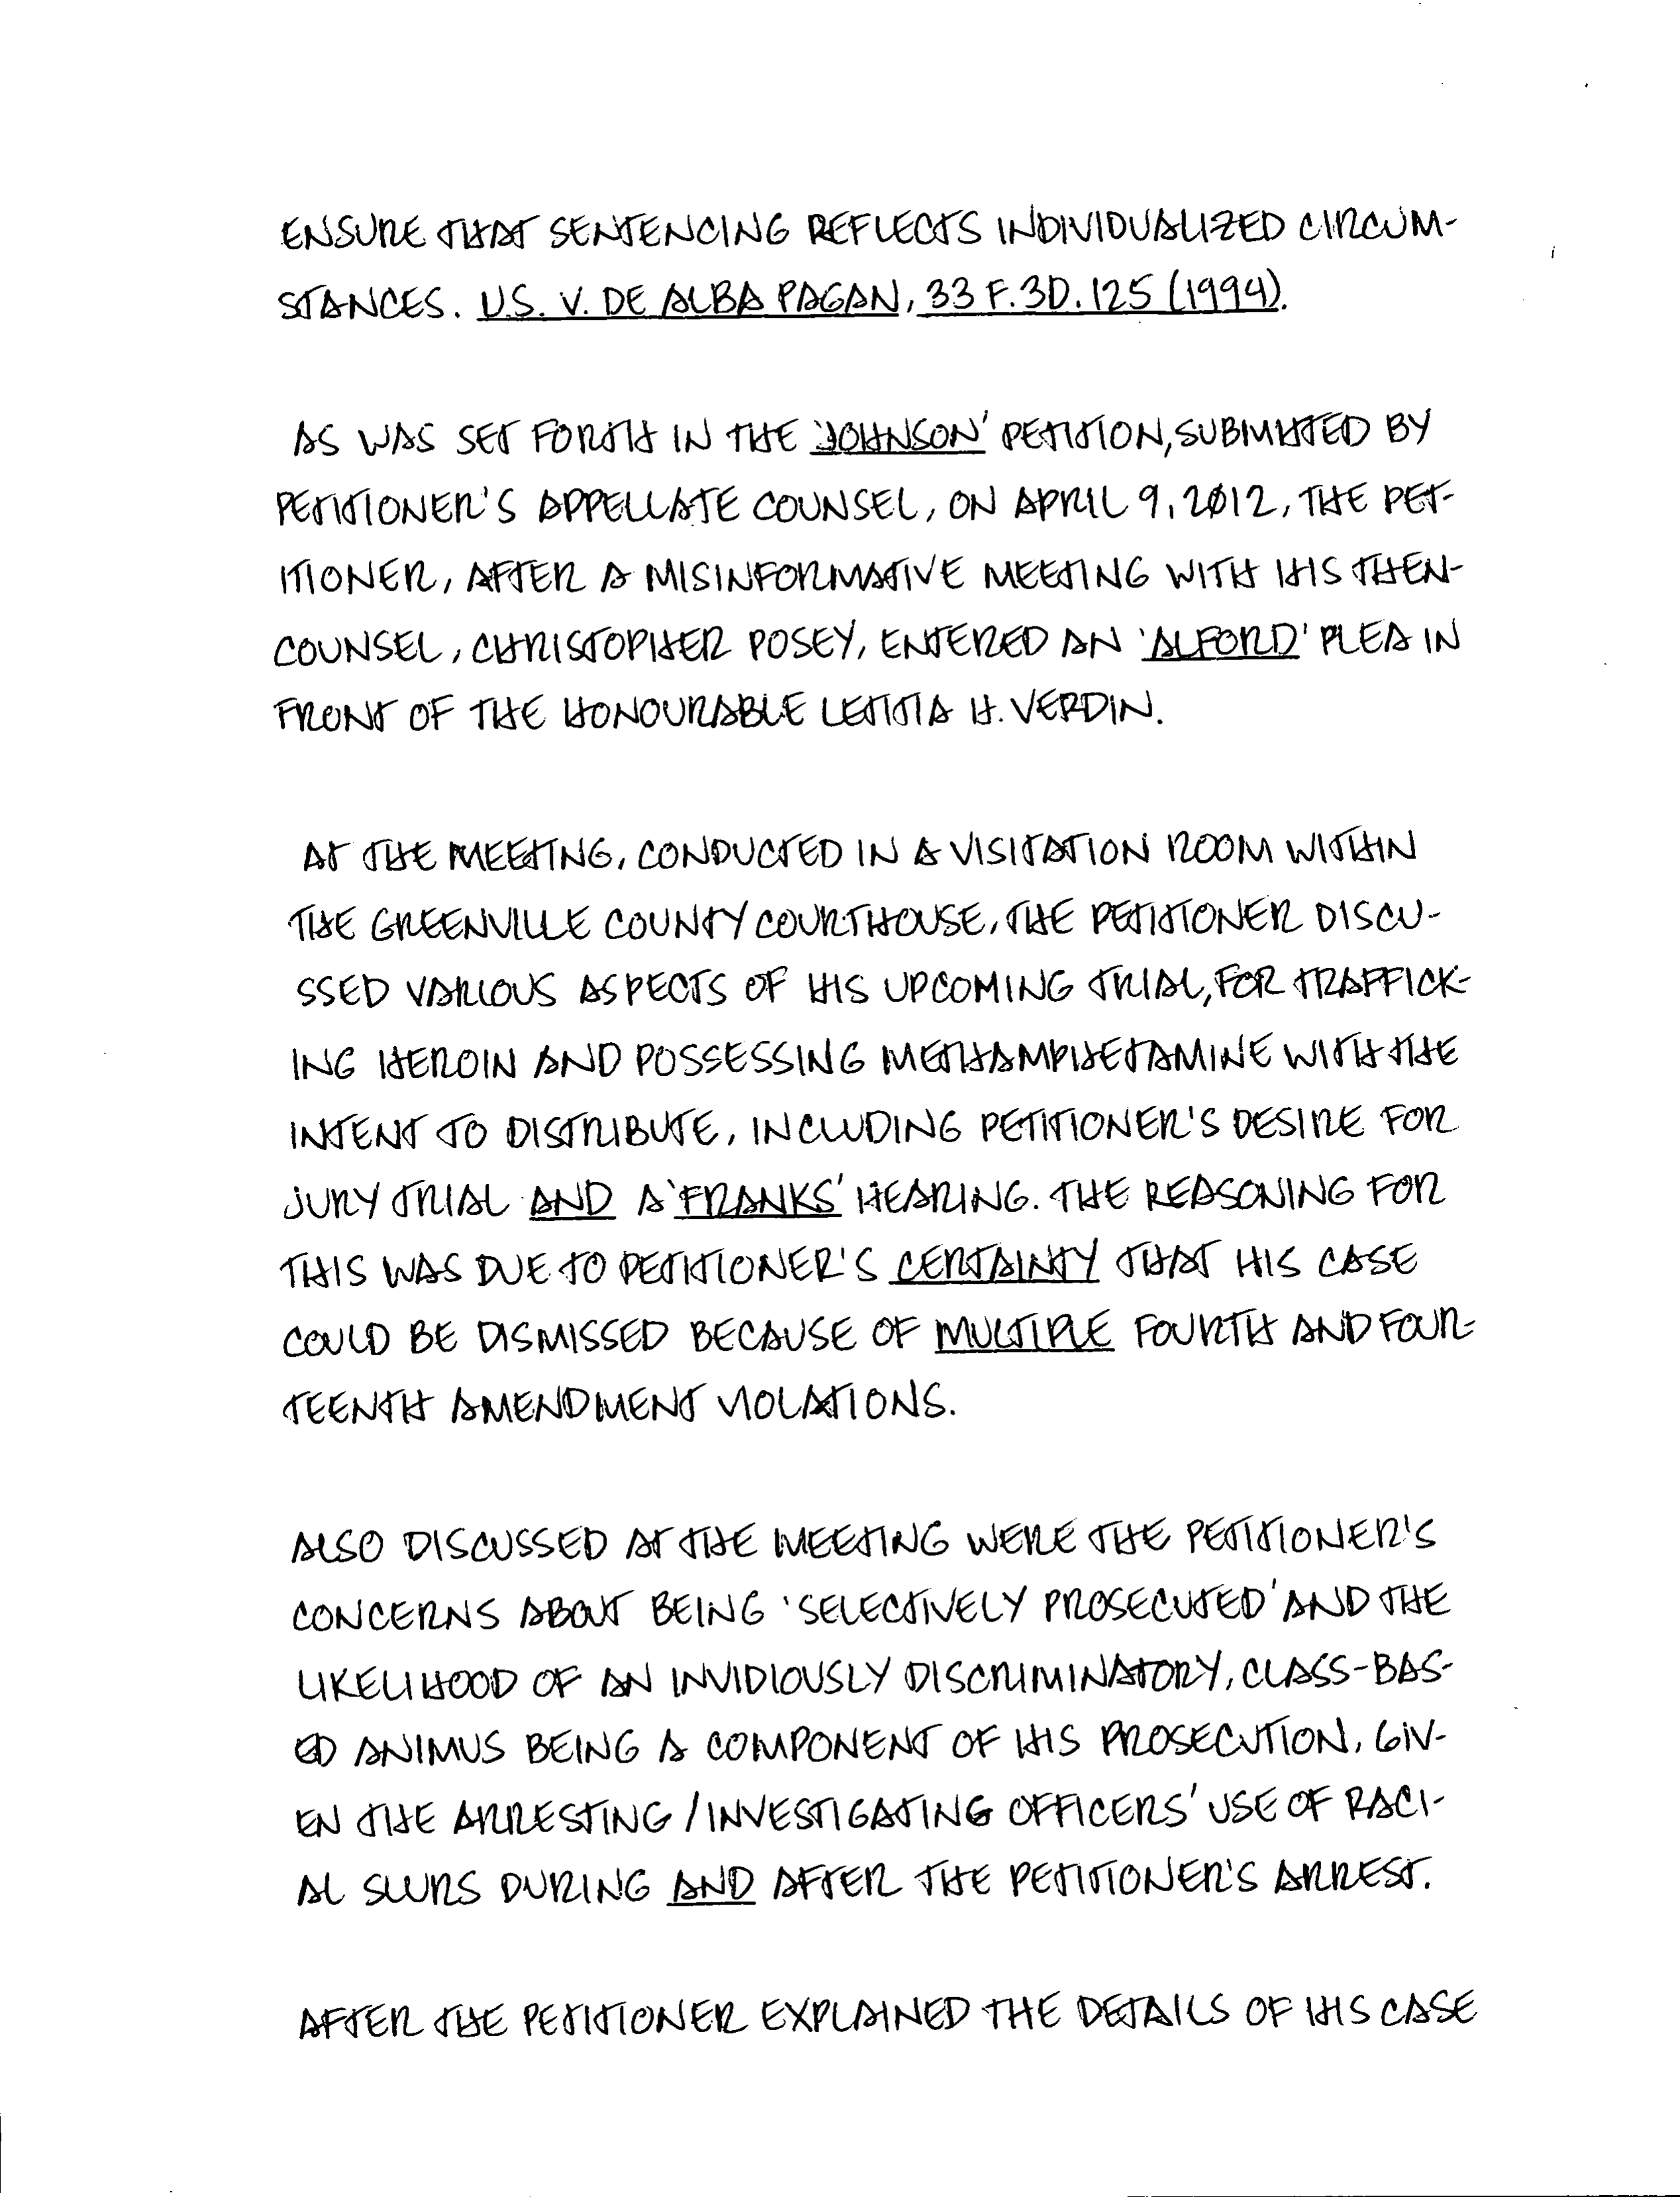 ENSURE THAT SENTENCING REFLECTS INDIVIDUALIZED CIRCUM-
STANCES. U.S. V. DE ALBA PAGAN, 33 F.3D. 125 (1994).
AS WAS SET FORTH IN THE 'JOHNSON' PETITION, SUBMITTED BY
PETITIONER'S APPELLATE COUNSEL, ON APRIL 9, 2012, THE PET-
ITIONER, AFTER A MISINFORMATIVE MEETING WITH HIS THEN-
COUNSEL, CHRISTOPHER POSEY, ENTERED AN 'ALFORD' PLEA IN
FRONT OF THE HONOURABLE LETITIA H. VERDIN.
AT THE MEETING, CONDUCTED IN A VISITATION ROOM WITHIN
THE GREENVILLE COUNTY COURTHOUSE, THE PETITIONER DISCU-
SSED VARIOUS ASPECTS OF HIS UPCOMING TRIAL, FOR TRAFFICK-
ING HEROIN AND POSSESSING METHAMPHETAMINE WITH THE
INTENT TO DISTRIBUTE, INCLUDING PETITIONER'S DESIRE FOR
JURY TRIAL AND A 'FRANKS' HEARING. THE REASONING FOR
THIS WAS DUE TO PETITIONER'S CERTAINTY THAT HIS CASE
COULD BE DISMISSED BECAUSE OF MULTIPLE FOURTH AND FOUR-
TEENTH AMENDMENT VIOLATIONS.
ALSO DISCUSSED AT THE MEETING WERE THE PETITIONER'S
CONCERNS ABOUT BEING 'SELECTIVELY PROSECUTED' AND THE
LIKELIHOOD OF AN INVIDIOUSLY DISCRIMINATORY, CLASS-BAS-
ED ANIMUS BEING A COMPONENT OF HIS PROSECUTION, GIV-
EN THE ARRESTING / INVESTIGATING OFFICERS' USE OF RACI-
AL SLURS DURING AND AFTER THE PETITIONER'S ARREST.
AFTER THE PETITIONER EXPLAINED THE DETAILS OF HIS CASE